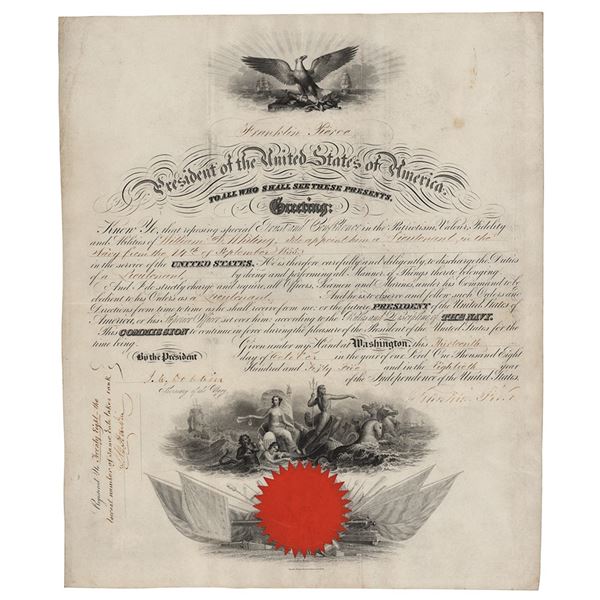 Franklin Pierce
President of the United States of America.
TO ALL WHO SHALL SEE THESE PRESENTS,
Greeting:
Know Ye, that reposing special Trust and Confidence in the Patriotism, Valour, Fidelity
and Abilities of William Whitney, I do appoint him a Lieutenant in the
Navy from the of September 1855
in the service of the UNITED STATES. He is therefore carefully and diligently, to discharge the Duties
of a Lieutenant by doing and performing all Manner of Things thereto belonging.
And I do strictly charge and require, all Officers, Seamen and Marines, under his Command to be
obedient to his Orders as a Lieutenant And he is to observe and follow such Orders and
Directions from time to time as he shall receive from me, or the future PRESIDENT of the United States of
America, or his Superior Officer set over him, according to the Rules and Discipline of THE NAVY.
This COMMISSION to continue in force during the pleasure of the President of the United States for the
time being.
Given under my Hand at Washington, this
By the President
day of October in the year of our Lord One Thousand Eight
Hundred and Fifty Five and in the Eightieth year
of the Independence of the United States.
J. C. Dobbin
Secretary of the Navy
Franklin Pierce
Registered No Twenty Eight, the
lowest number of same date takes rank